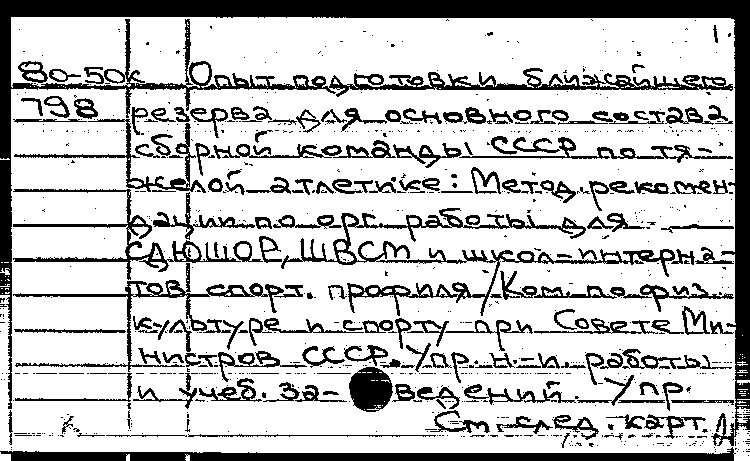 80-50к Опыт подготовки ближайшего
798 резерва для основного состава
сборной команды СССР по тя-
желой атлетике: Метод. рекомен-
дации по орг. работы для
СДЮШОР, ШВСМ и школ-интерна-
тов спорт. профиля / Ком. по физ.
культуре и спорту при Совете Ми-
нистров СССР. Упр. н.-и. работы
и учеб. за- ведений. Упр.
См. след. карт.